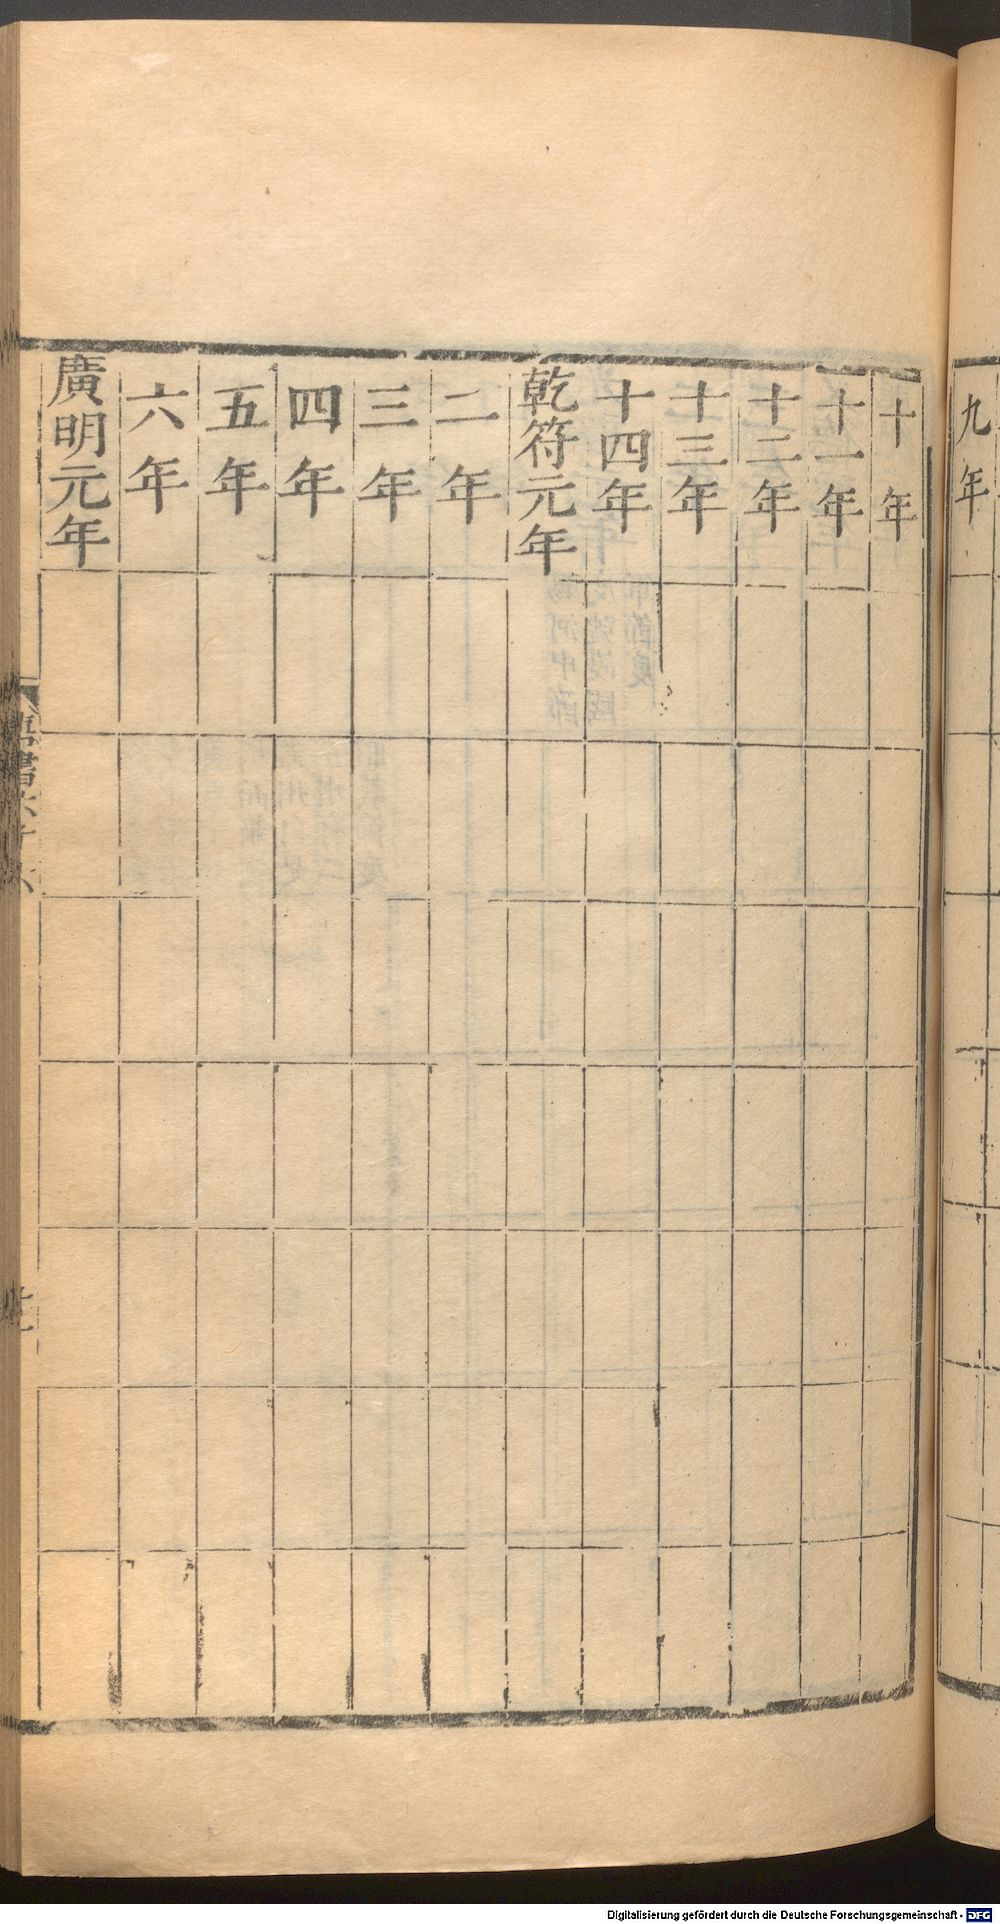 九年
十年
十一年
十二年
十三年
十四年
乾符元年
二年
三年
四年
五年
六年
廣明元年
唐書六十六
Digitalisierung gefördert durch die Deutsche Forschungsgemeinschaft - DFG